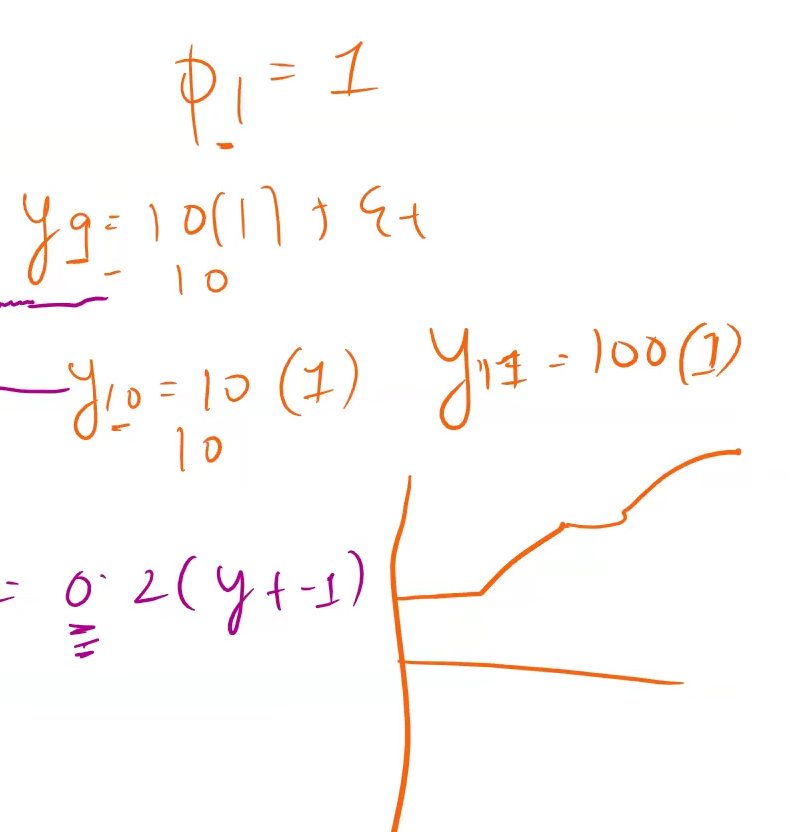 φ₁ = 1
y₉ = 10(1) + ε_t
10
y₁₀ = 10 (1)
10
y₁₁ = 100(1)
= 0.2(y_{t-1})